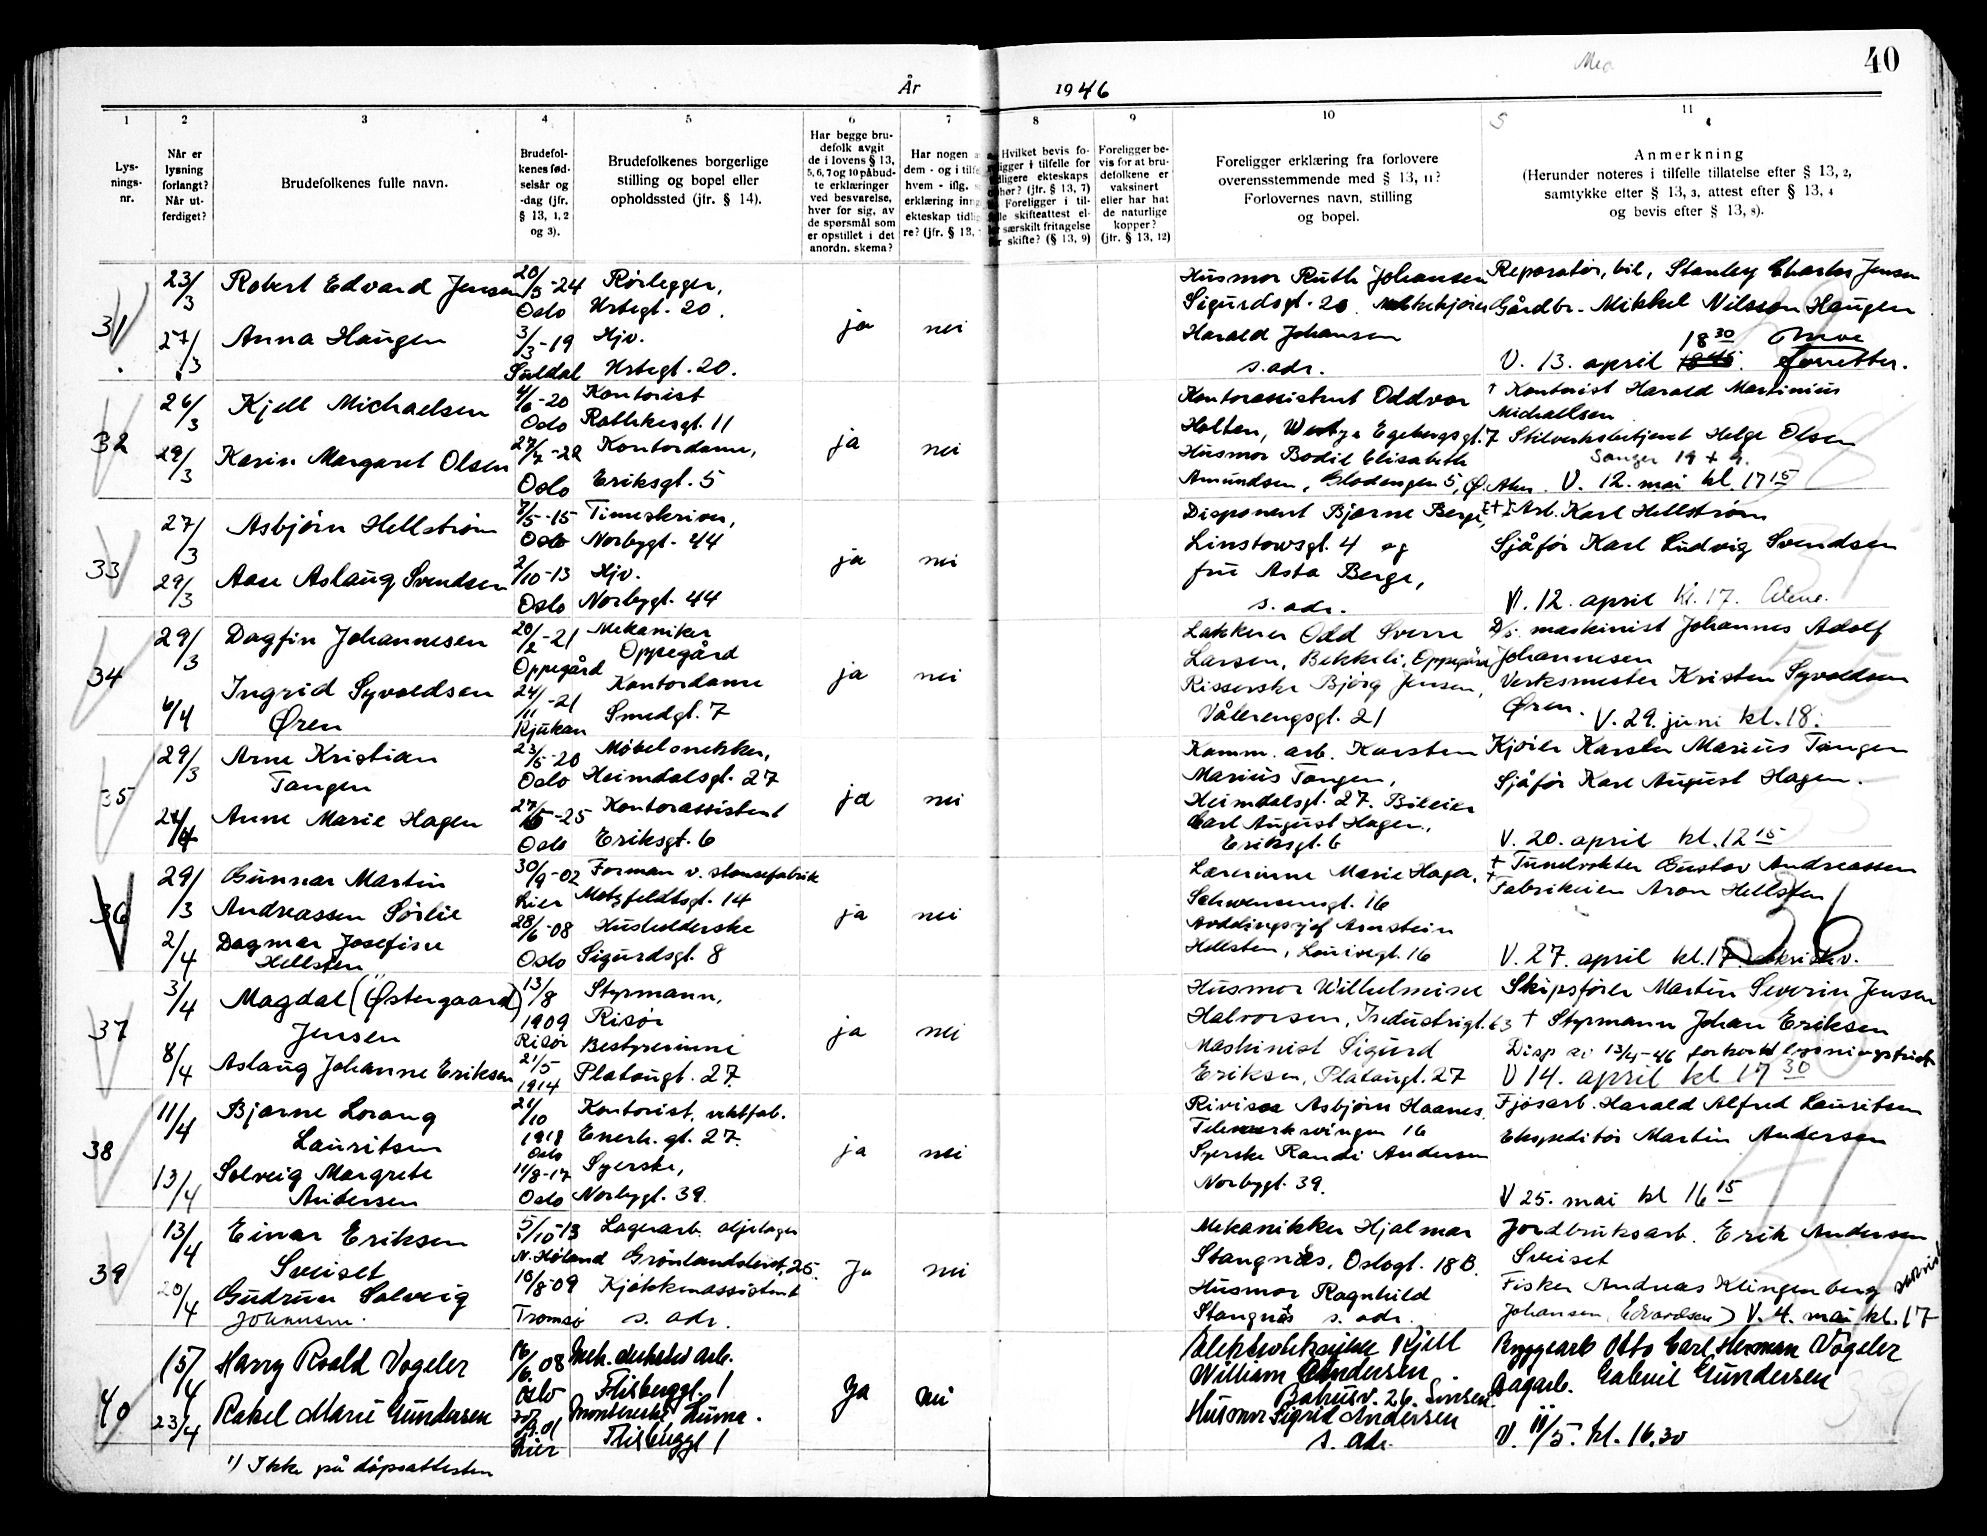 40
År 1946
1 2 3 4 5 6 7 8 9 10 11
Lys-
nings-
nr.
Når er
lysning
forlangt?
Når ut-
ferdiget?
Brudefolkenes fulle navn.
Brudefol-
kenes fød-
selsår og
-dag (jfr.
§ 13, 1, 2
og 3).
Brudefolkenes borgerlige
stilling og bopel eller
opholdssted (jfr. § 14).
Har begge bru-
defolk avgit
de i lovens § 13,
5, 6, 7 og 10 påbud-
te erklæringer
ved besvarelse,
hver for sig, av
de spørsmål som
er opstillet i det
anordn. skema?
Har nogen a
dem - og i tilfe
hvem - iflg.
erklæring inng
ekteskap tidlig
re? (jfr. § 13,
Hvilket bevis fo-
religger i tilfelle for
Foreligger i til-
skifteattest el-
særskilt fritagelse
skifte? (§ 13, 9)
Foreligger be-
vis for at bru-
defolkene er
vaksinert
eller har hat
de naturlige
kopper?
(jfr. § 13, 12)
Foreligger erklæring fra forlovere
overensstemmende med § 13, 11?
Forlovernes navn, stilling
og bopel.
Anmerkning
(Herunder noteres i tilfelle tillatelse efter § 13, 2,
samtykke efter § 13, 3, attest efter § 13, 4
og bevis efter § 13, 8).
31
23/3
27/3
Robert Edvard Jensen
Anna Haugen
20/3-24
Oslo
3/3-19
Suldal
Rørlegger,
Urtegt. 20.
Hjv.
Urtegt. 20.
ja nei
Husmor Ruth Johansen
Sigurdsgt. 20
Harald Johansen
s.adr.
Reparatør, bil, Stanley Charles Jensen
Gårdbr. Mikkel Nilsson Haugen
18 30
V. 13. april
32
26/3
29/3
Kjell Michaelsen
Karin Margaret Olsen
4/6-20
Oslo
27/7-22
Oslo
Kontorist
Rathkesgt. 11
Kontordame,
Eriksgt. 5
ja nei
Kontorassistent Oddvar
Holten, Westye Egebergsgt. 7
Husmor Bodil Elisabeth
Amundsen, Gladengen 5, Ø. Aker.
† Kontorist Harald Martinius
Michaelsen
Stilverksbetjent Helge Olsen
V. 12. mai kl. 17 15
33
27/3
29/3
Asbjørn Hellstrøm
Aase Aslaug Svendsen
7/5-15
Oslo
2/10-13
Oslo
Timeskriver,
Norbygt. 44
Hjv.
Norbygt. 44
ja nei
Disponent Bjarne Berge,
Linstowsgt. 4 og
fru Asta Berge,
s. adr.
Arb. Karl Hellstrøm
Sjåfør Karl Ludvig Svendsen
V. 12. april kl. 17. Alene.
34
29/3
6/4
Dagfin Johannesen
Ingrid Syvoldsen
Øren
20/2-21
Oppegård
24/11-21
Rjukan
Mekaniker
Oppegård
Kontordame
Smedgt. 7
ja nei
Lakkerer Odd Sverre
Larsen, Bekkeli, Oppegård
Risserske Bjørg Jensen,
Vålerengsgt. 21
D/s. maskinist Johannes Adolf
Johannesen
Verksmester Kristen Syvoldsen
Øren.
V. 29. juni kl. 18.
35
29/3
24/4
Arne Kristian
Tangen
Anne Marie Hagen
23/5-20
Oslo
27/5-25
Oslo
Møbelsnekker,
Heimdalsgt. 27
Kontorassistent
Eriksgt. 6
ja nei
Komm. arb. Karsten
Marius Tangen,
Heimdalsgt. 27. Bileier
Carl August Hagen,
Eriksgt. 6
Kjører Karsten Marius Tangen
Sjåfør Karl August Hagen.
V. 20. april kl. 12 15
36
29/3
2/4
Gunnar Martin
Andreassen Sørlie
Dagmar Josefine
Hellsten
30/9-02
Lier
28/6-08
Oslo
Forman v. stansefabrik
Motzfeldtsgt. 14
Husholderske
Sigurdsgt. 8
ja nei
Lærerinne Marie Haga,
Schwensensgt. 16
Avdelingssjef Arnstein
Hellsten, Laurivegt. 16
† Tunelvokter Gustav Andreassen
† Fabrikeier Aron Hellsten
36
V. 27. april kl. 17.
37
3/4
8/4
Magdal (Østergaard)
Jensen
Aslaug Johanne Eriksen
13/8
1909
Risør
21/5
1914
Styrmann,
Risør
Bestyrerinne
Platougt. 27.
ja nei
Husmor Wilhelmine
Halvorsen, Industrigt. 63
Maskinist Sigurd
Eriksen, Platougt. 27
Skipsfører Martin Severin Jensen
† Styrmann Johan Eriksen
Disp av 13/4-46 forkortet lysningsfrist
V 14. april kl 17 30
38
11/4
13/4
Bjarne Lorang
Lauritsen
Solveig Margrete
Andersen
21/10
1918
Oslo
11/8-17
Oslo
Kontorist, vektfab.
Enerh. gt. 27.
Syerske,
Norbygt. 39.
ja nei
Revisor Asbjørn Haanes
Telemarksvingen 16
Syerske Randi Andersen
Norbygt. 39.
Fjøsarb. Harald Alfred Lauritsen
Ekspeditør Martin Andersen
V 25. mai kl 16 15
39
13/4
20/4
Einar Eriksen
Sveiset
Gudrun Solveig
Johansen.
5/10-13
N. Høland
10/8-09
Tromsø
Lagerarb. oljelager
Grønlandsleiret, 25.
Kjøkkenassistent
s. adr.
Ja nei
Mekanikker Hjalmar
Stangnæs, Oslogt. 18 B.
Husmor Ragnhild
Stangnæs s. adr.
Jordbruksarb. Erik Andersen
Sveiset
Fisker Andreas Klingenberg
Johansen (Edvardsen) V. 4. mai kl. 17
40
15/4
23/4
Harry Roald Vogeler
Rakel Marie Gundersen
16/6.08
Oslo
Lier
Mek. verksted arb.
Flisberggt. 1
Montereske, Luma.
Flisberggt 1
Ja nei
Elektrotekniker Kjell
William Gundersen.
Bakusv. 26. Sinsen.
Husmor Sigrid Andersen
s. adr.
Byggearb Otto Carl Herman Vogeler
Dagarb. Gabriel Gundersen
V. 11/5. kl. 16.30
1) Ikke på dåpsattesten